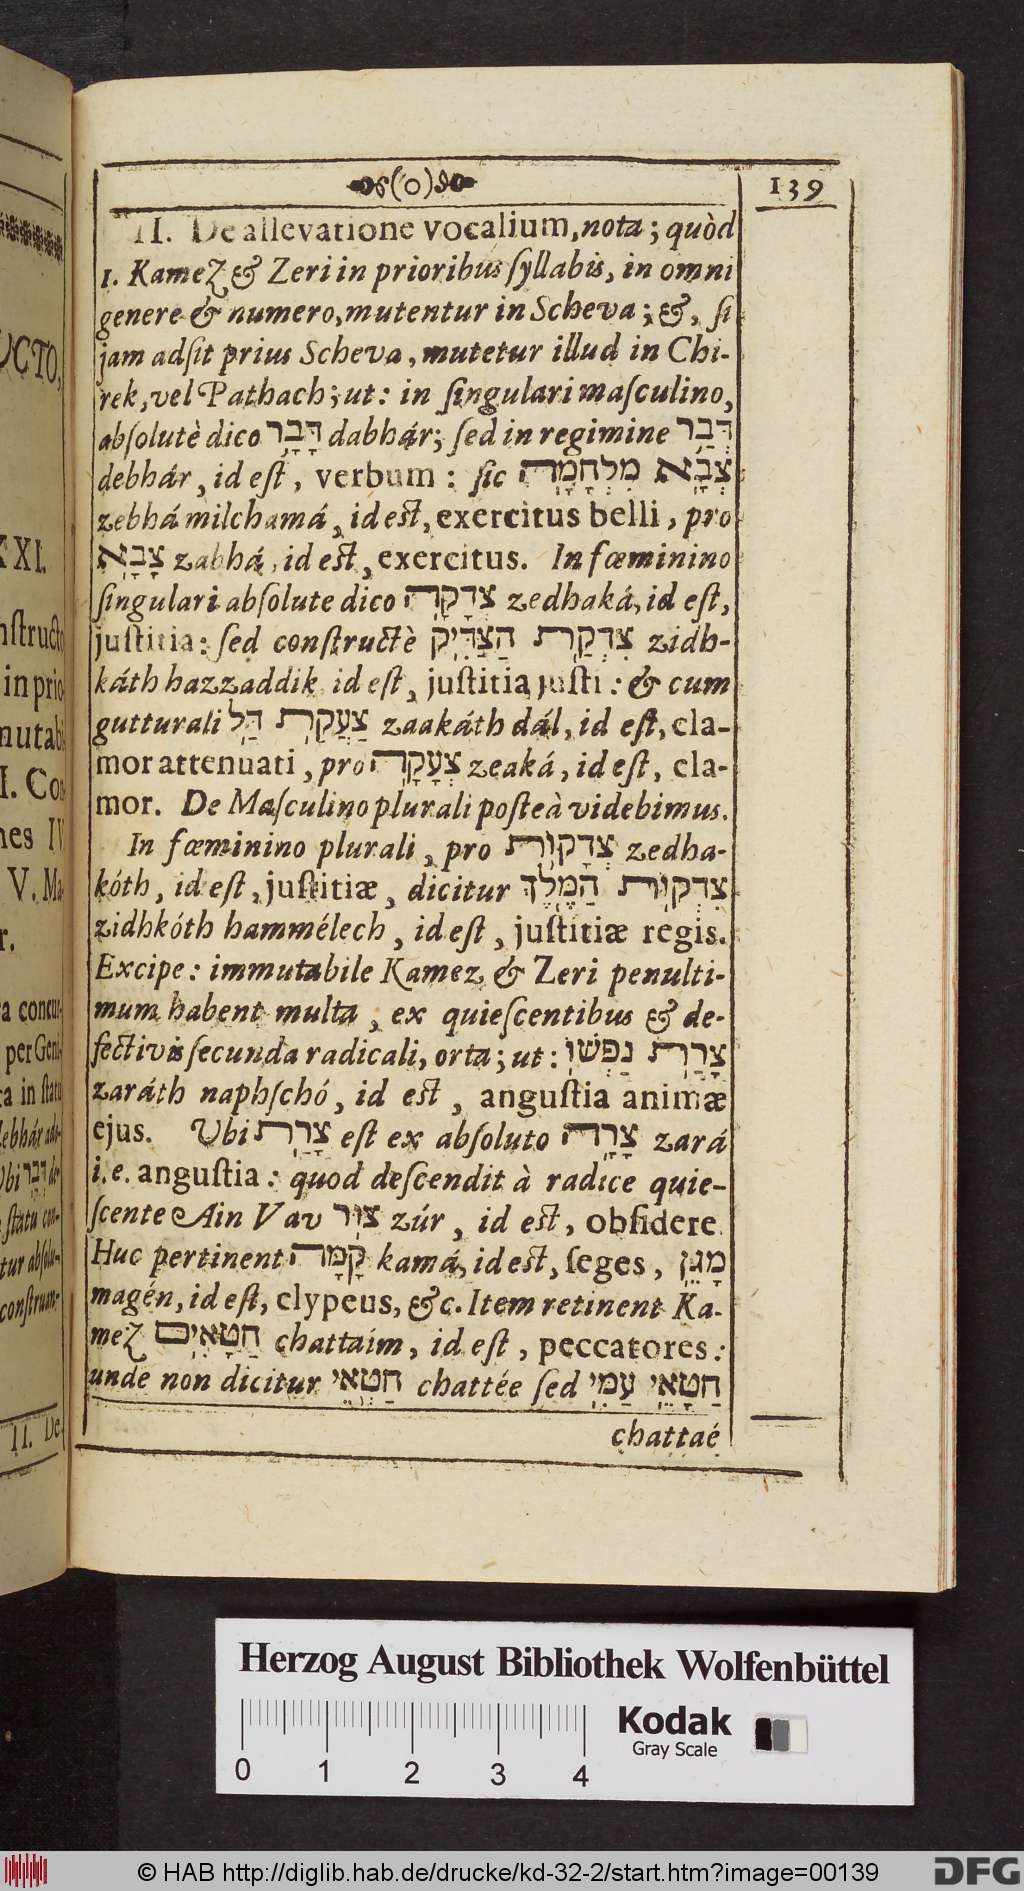 139
II. De allevatione vocalium, nota; quòd
1. Kamez & Zeri in prioribus syllabis, in omni
genere & numero, mutentur in Scheva; &, si
jam adsit prius Scheva, mutetur illud in Chi-
rek, vel Pathach; ut: in singulari masculino,
absolutè dico דָּבָר dabhár; sed in regimine דְּבַר
debhár, id est, verbum: sic צְבָא מִלְחָמָה
zebhá milchamá, id est, exercitus belli, pro
צָבָא zabhá, id est, exercitus. In fœminino
singulari absolute dico צְדָקָה zedhaká, id est,
justitia: sed constructè צִדְקַת הַצַּדִּיק zidh-
káth hazzaddik id est, justitia justi: & cum
gutturali צַעֲקַת דַּל zaakáth dál, id est, cla-
mor attenuati, pro צְעָקָה zeaká, id est, cla-
mor. De Masculino plurali posteà videbimus.
In fœminino plurali, pro צְדָקוֹת zedha-
kóth, id est, justitiæ, dicitur צִדְקוֹת הַמֶּלֶךְ
zidhkóth hammélech, id est, justitiæ regis.
Excipe: immutabile Kamez & Zeri penulti-
mum habent multa, ex quiescentibus & de-
fectivis secunda radicali, orta; ut: צָרַת נַפְשׁוֹ
zaráth naphschó, id est, angustia animæ
ejus. Ubi צָרַת est ex absoluto צָרָה zará
i.e. angustia: quod descendit à radice quie-
scente Ain Vav צוּר zúr, id est, obsidere
Huc pertinent קָמָה kamá, id est, seges, מָגֵן
magén, id est, clypeus, &c. Item retinent Ka-
mez חַטָּאִים chattaím, id est, peccatores:
unde non dicitur חַטְּאֵי chattée sed חַטָּאֵי עַמִּי
chattaé
UCTO,
XXI.
in prio
I. Con
V. Ma-
a concur-
per Geni-
ta in statu
debhár ad-
Ubi דְּבַר de-
statu con-
tur absolu-
construm-
II. De
Herzog August Bibliothek Wolfenbüttel
0 1 2 3 4
Kodak
Gray Scale
© HAB http://diglib.hab.de/drucke/kd-32-2/start.htm?image=00139
DFG